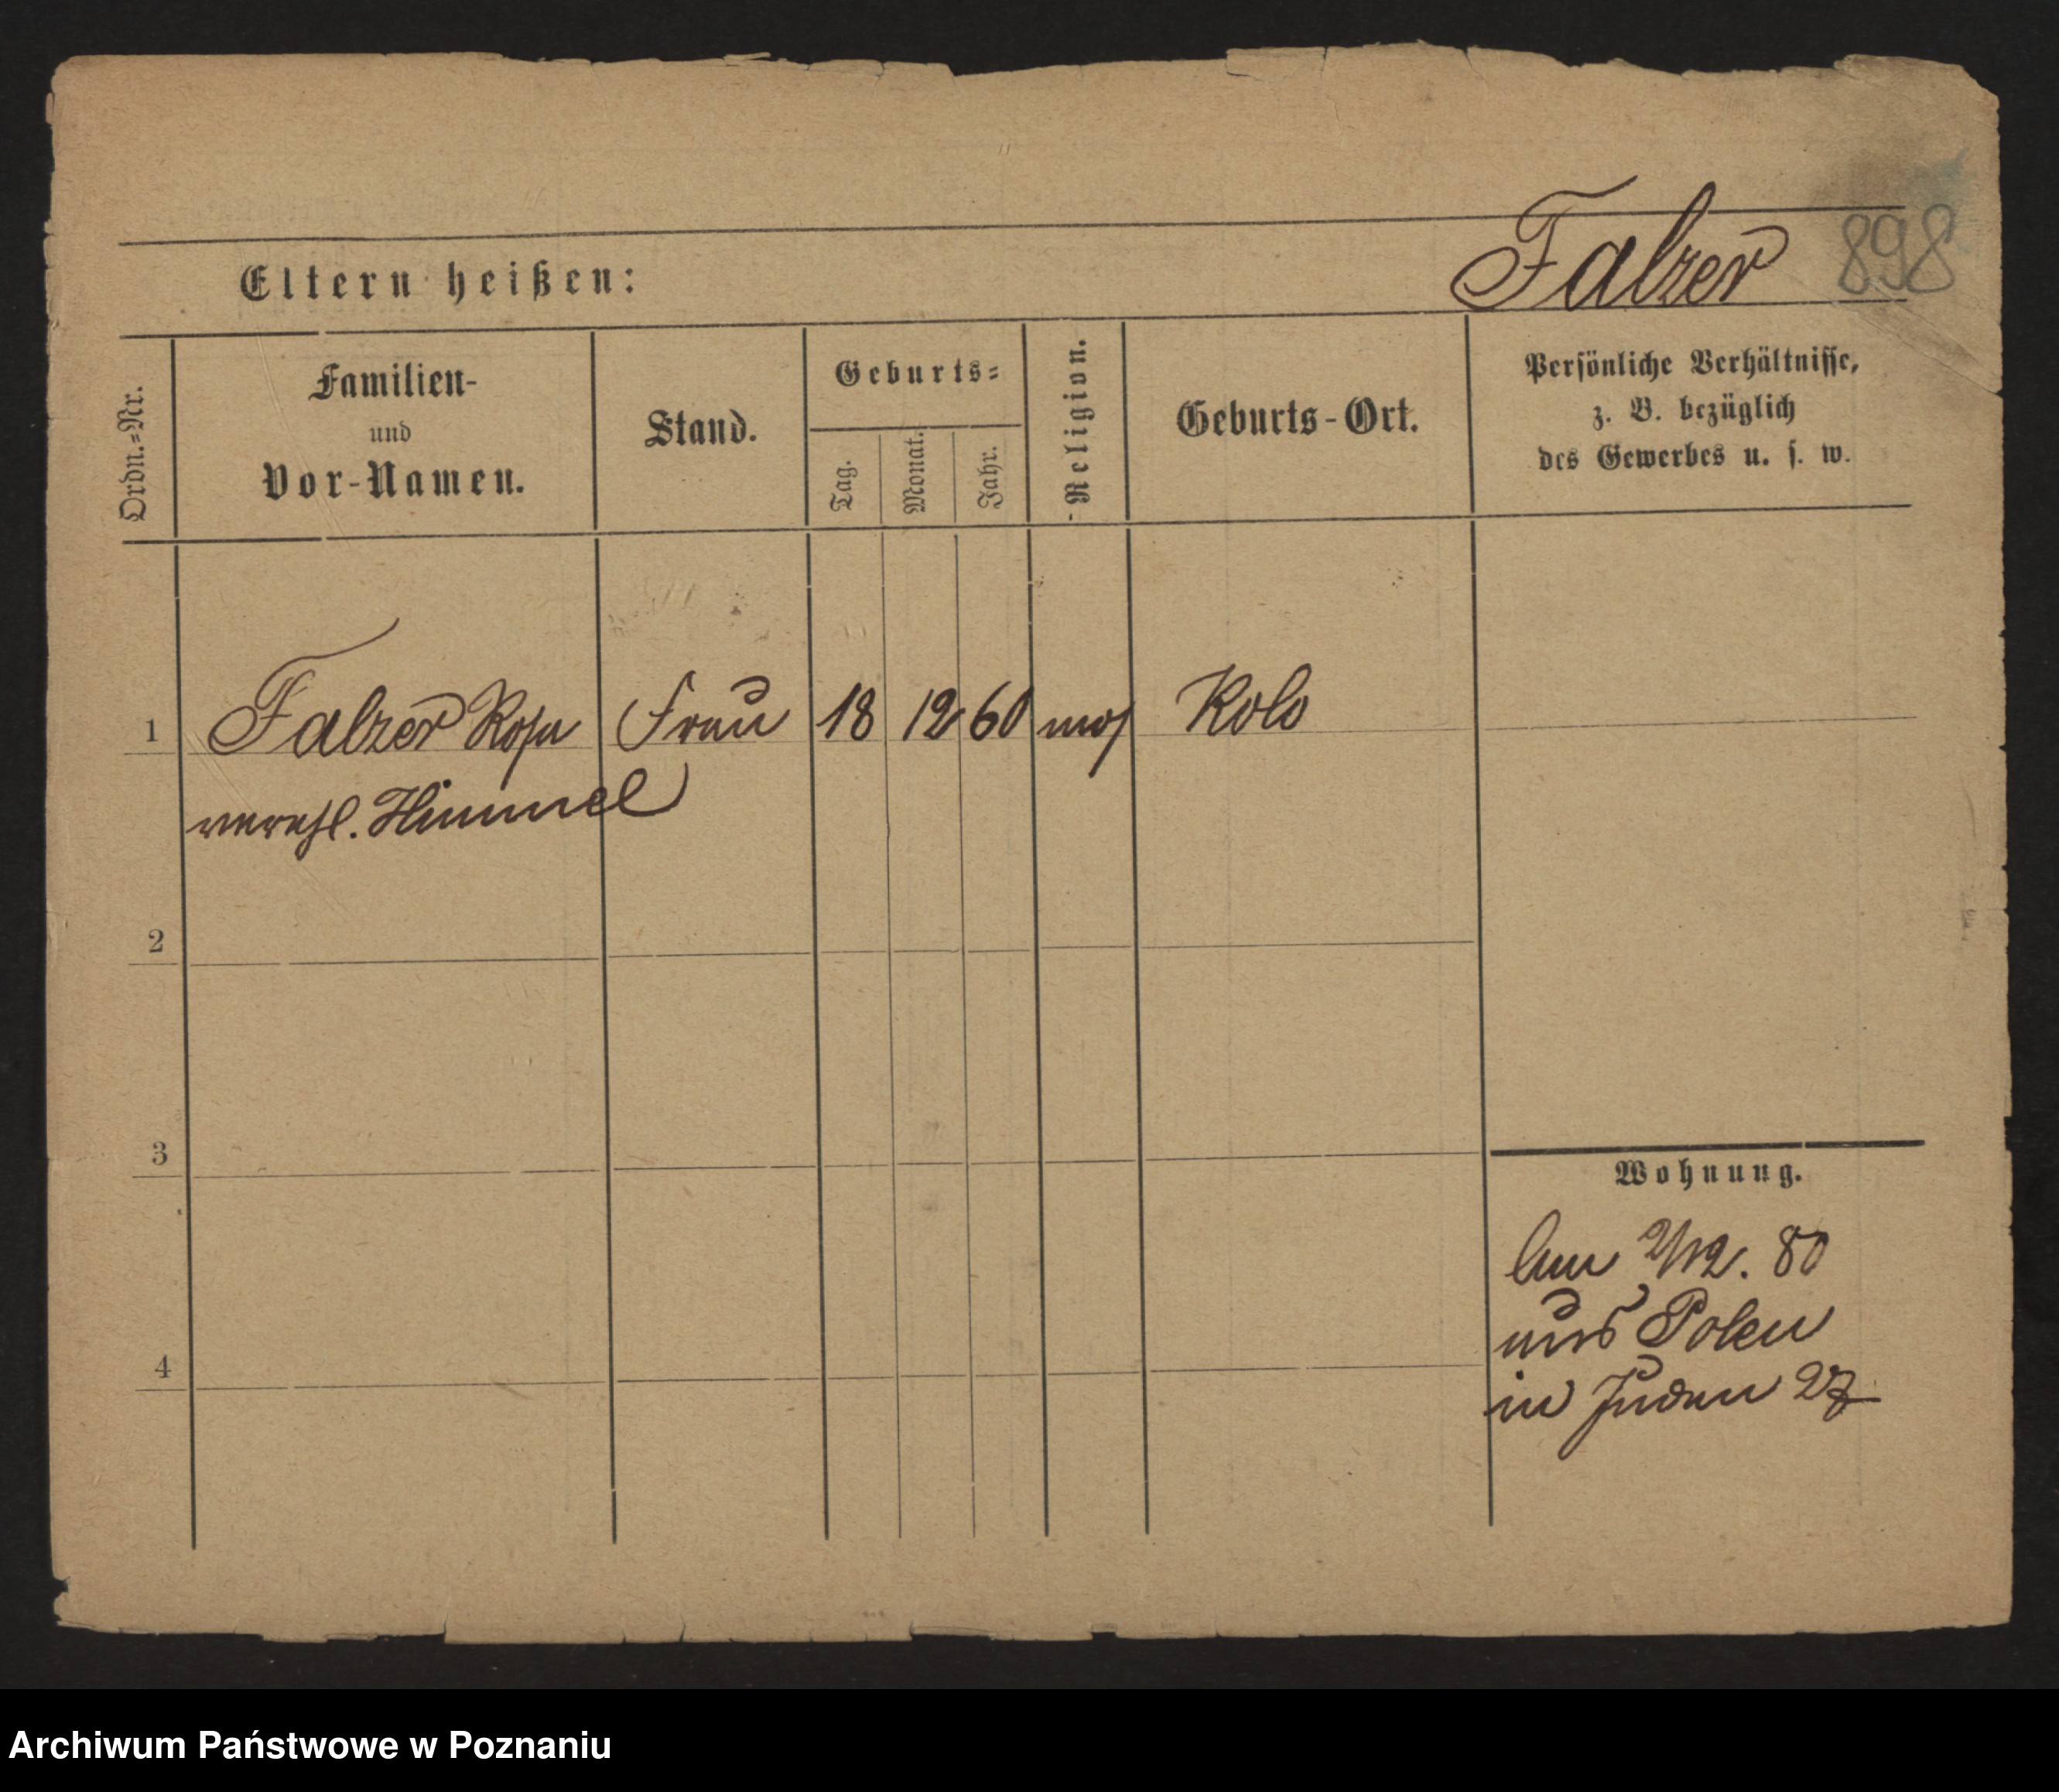 Falzer 898
Eltern heißen:
Ordn.=Nr.
Familien-
und
Vor-Namen.
Stand.
Geburts=
Tag.
Monat.
Jahr.
Religion.
Geburts-Ort.
Persönliche Verhältnisse,
z. B. bezüglich
des Gewerbes u. s. w.
1 Falzer Rosa Frau 18 12 60 mos Kolo
verehl. Himmel
2
3
4
Wohnung.
Am 2/12. 80
aus Polen
in Juden 27
Archiwum Państwowe w Poznaniu